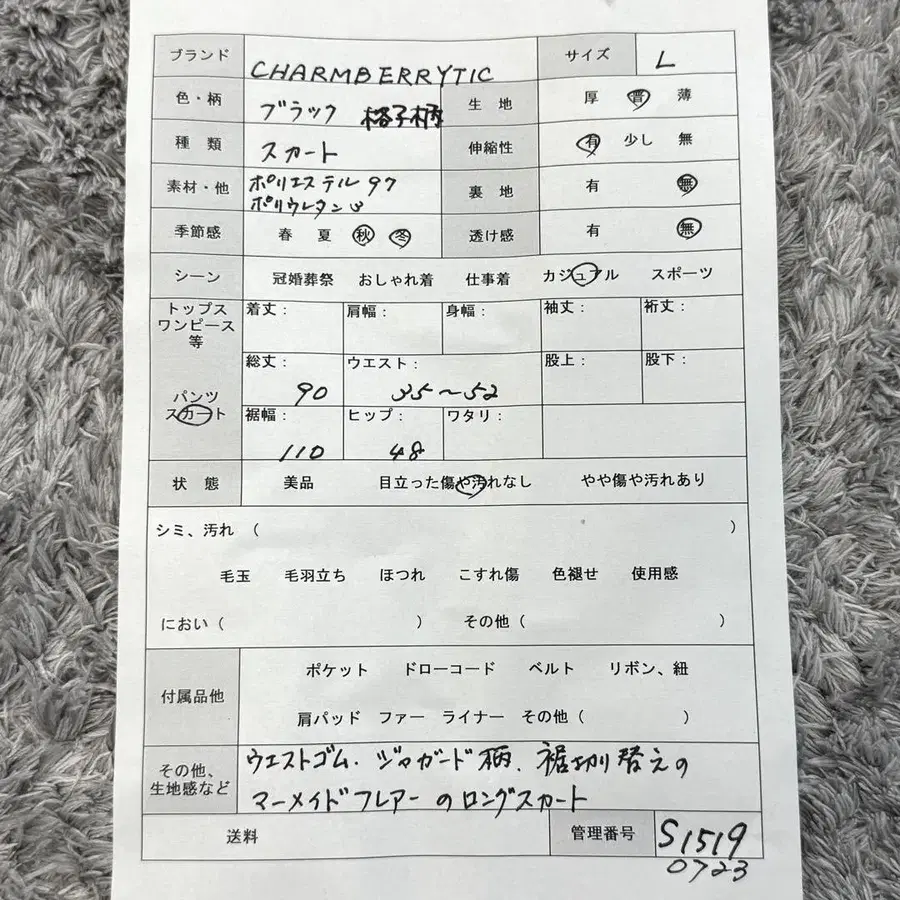 ブランド CHARMBERRYTIC サイズ L
色・柄 ブラック 格子柄 生 地 厚 普 薄
種 類 スカート 伸縮性 有 少し 無
素材・他 ポリエステル 97
ポリウレタン 3 裏 地 有 無
季節感 春 夏 秋 冬 透け感 有 無
シーン 冠婚葬祭 おしゃれ着 仕事着 カジュアル スポーツ
トップス
ワンピース
等
着丈: 肩幅: 身幅: 袖丈: 裄丈:
パンツ
スカート
総丈: 90 ウエスト: 35～52 股上: 股下:
裾幅: 110 ヒップ: 48 ワタリ:
状 態 美品 目立った傷や汚れなし やや傷や汚れあり
シミ、汚れ ( )
毛玉 毛羽立ち ほつれ こすれ傷 色褪せ 使用感
におい ( ) その他 ( )
付属品他 ポケット ドローコード ベルト リボン、紐
肩パッド ファー ライナー その他 ( )
その他、
生地感など
ウエストゴム．ジャガード柄．裾切り替えの
マーメイドフレアーのロングスカート
送料 管理番号 S1519
0723